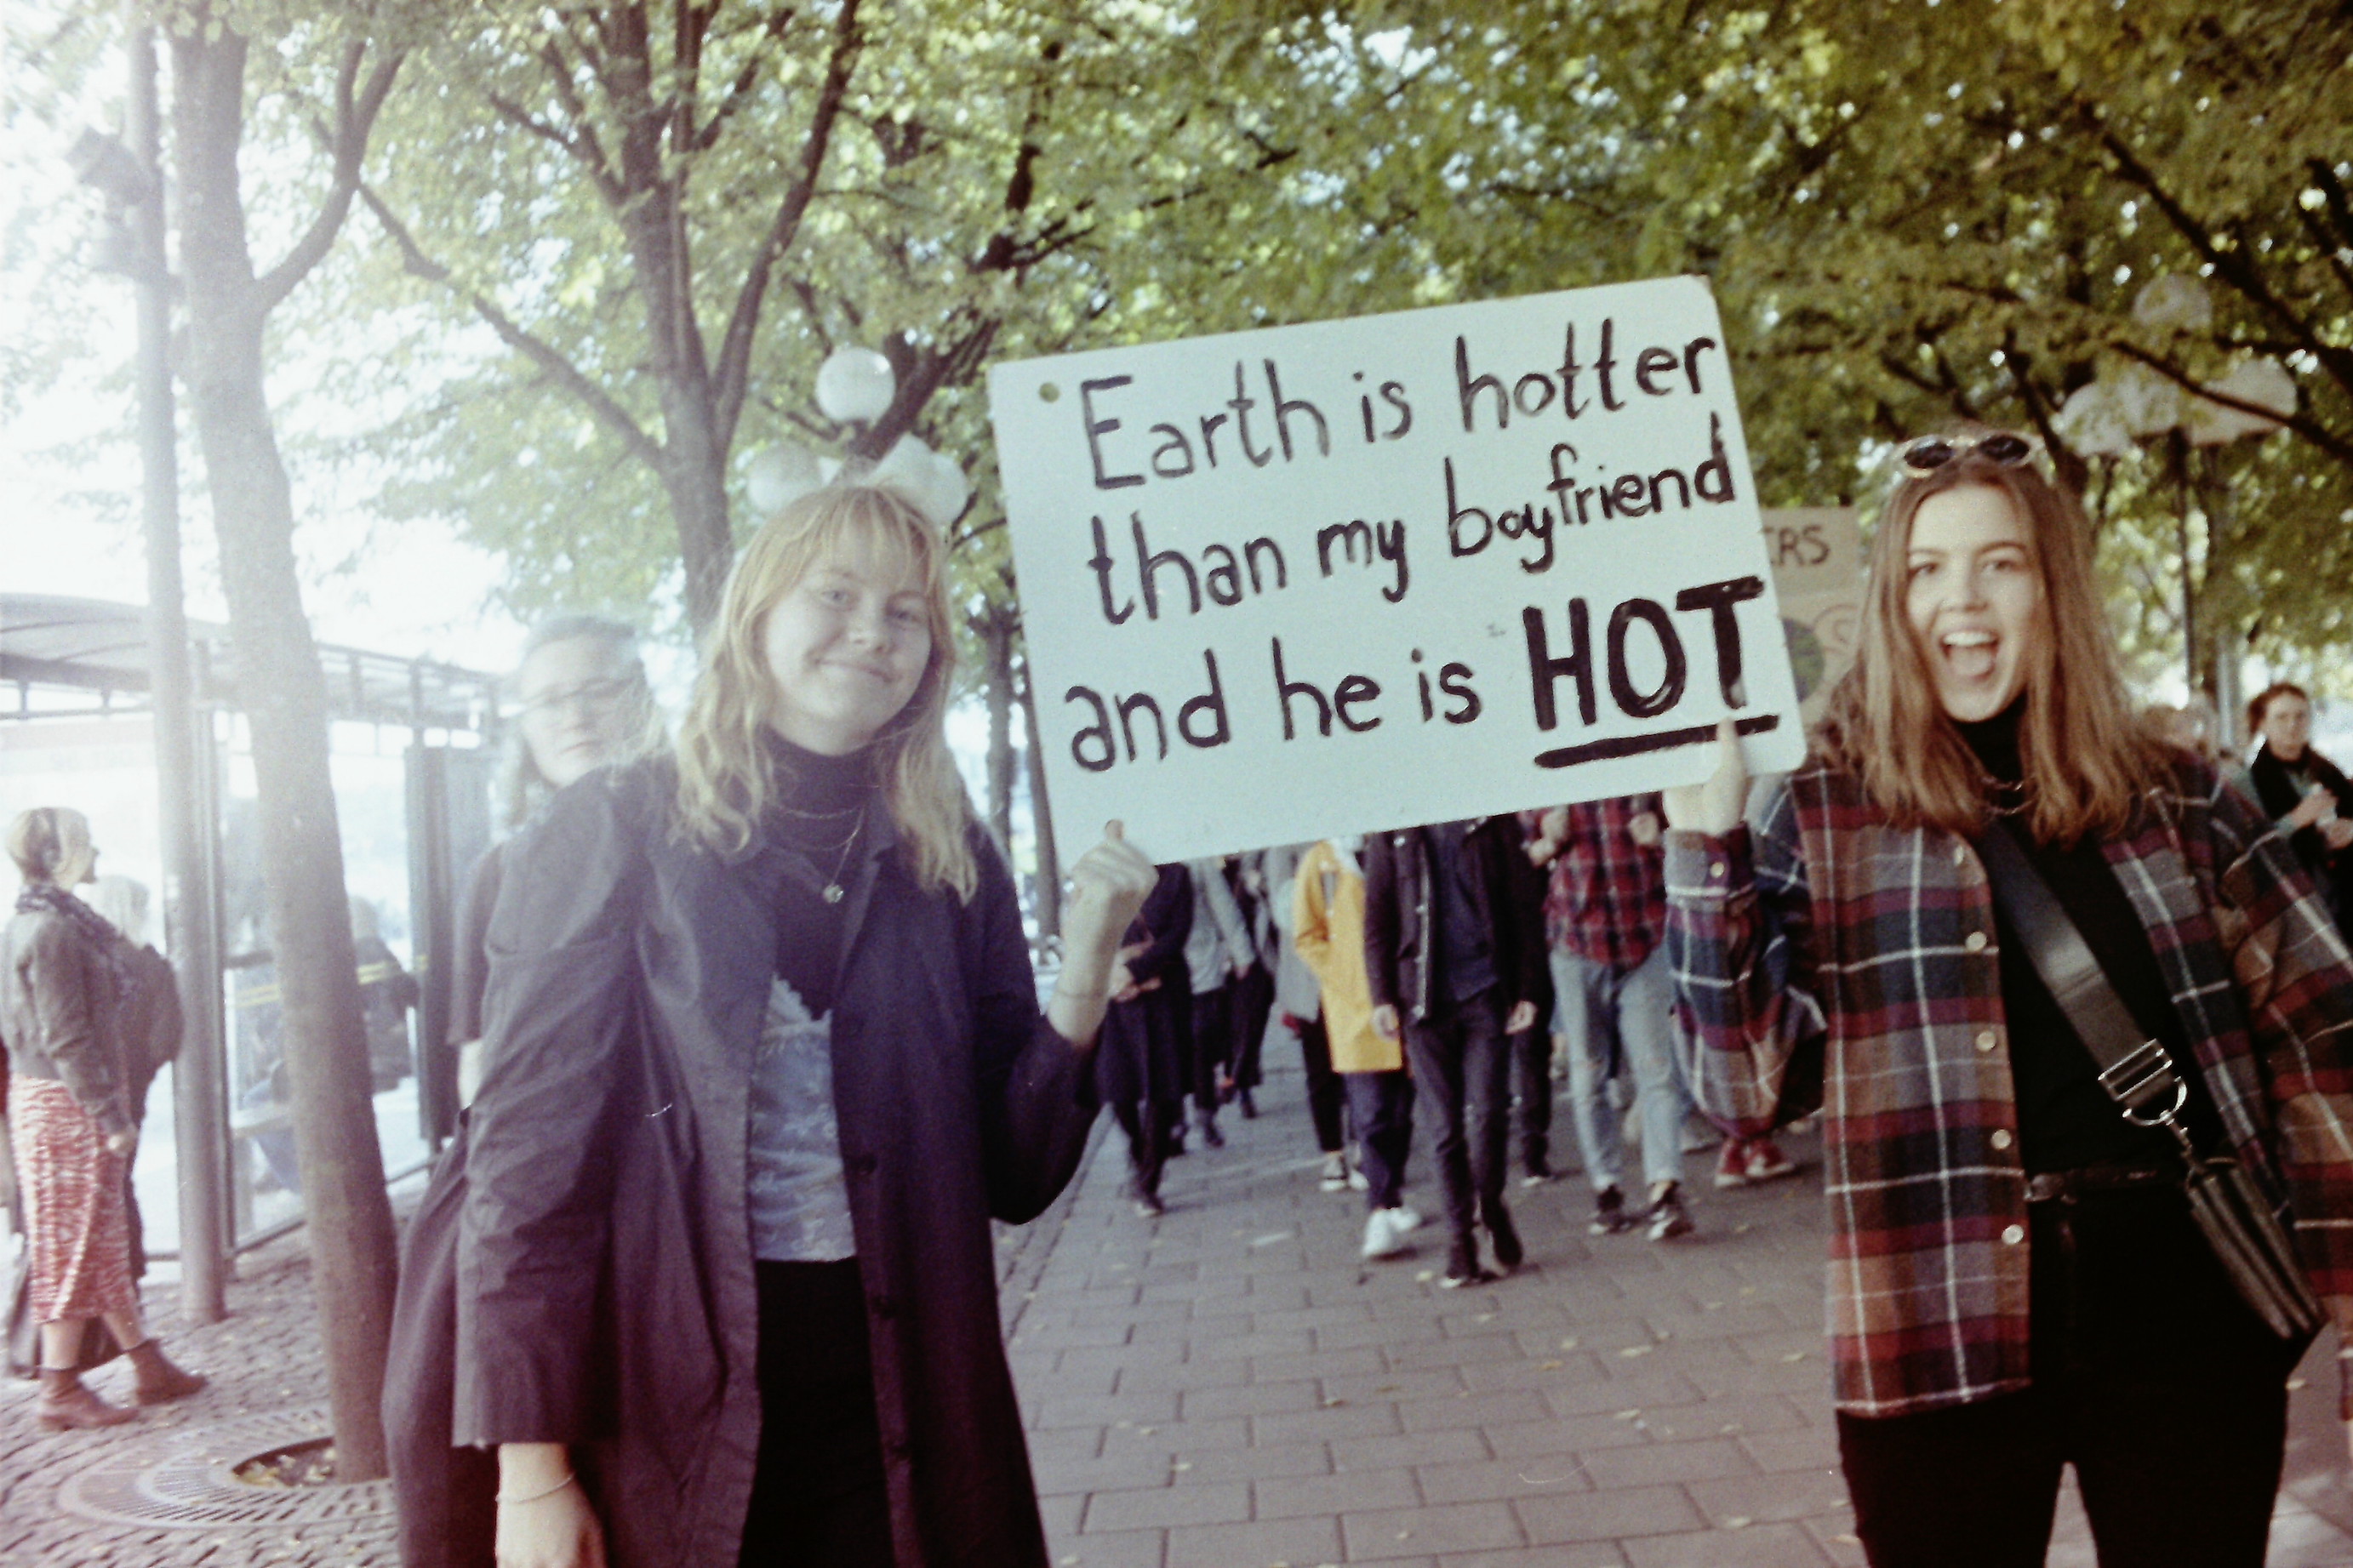 Earth is hotter
than my boyfriend
and he is HOT